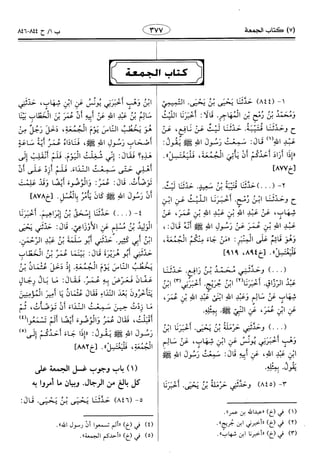 (٧) كتاب الجمعة
٣٧٧
ب ١/ ح ٨٤٤-٨٤٦
كتاب الجمعة
١- (٨٤٤) حَدَّثَنَا يَحْيَى بْنُ يَحْيَى التَّمِيمِيُّ
وَمُحَمَّدُ بْنُ رُمْحِ بْنِ الْمُهَاجِرِ. قَالَا: أَخْبَرَنَا اللَّيْثُ.
ح وَحَدَّثَنَا قُتَيْبَةُ. حَدَّثَنَا لَيْثٌ عَنْ نَافِعٍ، عَنْ
عَبْدِ اللهِ(١) قَالَ: سَمِعْتُ رَسُولَ اللهِ ﷺ يَقُولُ:
«إِذَا أَرَادَ أَحَدُكُمْ أَنْ يَأْتِيَ الْجُمُعَةَ، فَلْيَغْتَسِلْ».
[ح٨٧٧]
٢- (...) حَدَّثَنَا قُتَيْبَةُ بْنُ سَعِيدٍ. حَدَّثَنَا لَيْثٌ.
ح وَحَدَّثَنَا ابْنُ رُمْحٍ. أَخْبَرَنَا اللَّيْثُ عَنِ ابْنِ
شِهَابٍ، عَنْ عَبْدِ اللهِ بْنِ عَبْدِ اللهِ بْنِ عُمَرَ، عَنْ
عَبْدِ اللهِ بْنِ عُمَرَ، عَنْ رَسُولِ اللهِ ﷺ أَنَّهُ قَالَ،
وَهُوَ قَائِمٌ عَلَى الْمِنْبَرِ: «مَنْ جَاءَ مِنْكُمُ الْجُمُعَةَ،
فَلْيَغْتَسِلْ». [خ٨٩٤، ٩١٩]
(...) وَحَدَّثَنِي مُحَمَّدُ بْنُ رَافِعٍ. حَدَّثَنَا
عَبْدُ الرَّزَّاقِ. أَخْبَرَنَا(٢) ابْنُ جُرَيْجٍ. أَخْبَرَنِي(٣) ابْنُ
شِهَابٍ عَنْ سَالِمٍ وَعَبْدِ اللهِ ابْنَيْ عَبْدِ اللهِ بْنِ عُمَرَ،
عَنِ ابْنِ عُمَرَ، عَنِ النَّبِيِّ ﷺ. بِمِثْلِهِ.
(...) وَحَدَّثَنِي حَرْمَلَةُ بْنُ يَحْيَى. أَخْبَرَنَا ابْنُ
وَهْبٍ. أَخْبَرَنِي يُونُسُ عَنِ ابْنِ شِهَابٍ، عَنْ سَالِمِ
ابْنِ عَبْدِ اللهِ، عَنْ أَبِيهِ قَالَ: سَمِعْتُ رَسُولَ اللهِ ﷺ
يَقُولُ. بِمِثْلِهِ.
٣- (٨٤٥) وَحَدَّثَنِي حَرْمَلَةُ بْنُ يَحْيَى. أَخْبَرَنَا
(١) في (ع) «عبدالله بن عمر».
(٢) في (ع) «أخبرني ابن جريج».
(٣) في (ع) «أخبرنا ابن شهاب».
ابْنُ وَهْبٍ أَخْبَرَنِي يُونُسُ عَنِ ابْنِ شِهَابٍ، حَدَّثَنِي
سَالِمُ بْنُ عَبْدِ اللهِ عَنْ أَبِيهِ أَنَّ عُمَرَ بْنَ الْخَطَّابِ بَيْنَا
هُوَ يَخْطُبُ النَّاسَ يَوْمَ الْجُمُعَةِ، دَخَلَ رَجُلٌ مِنْ
أَصْحَابِ رَسُولِ اللهِ ﷺ، فَنَادَاهُ عُمَرُ أَيَّةُ سَاعَةٍ
هَذِهِ؟ فَقَالَ: إِنِّي شُغِلْتُ الْيَوْمَ. فَلَمْ أَنْقَلِبْ إِلَى
أَهْلِي حَتَّى سَمِعْتُ النِّدَاءَ. فَلَمْ أَزِدْ عَلَى أَنْ
تَوَضَّأْتُ. قَالَ عُمَرُ: وَالْوُضُوءَ أَيْضًا وَقَدْ عَلِمْتَ
أَنَّ رَسُولَ اللهِ ﷺ كَانَ يَأْمُرُ بِالْغُسْلِ. [خ٨٧٨]
٤- (...) حَدَّثَنَا إِسْحَقُ بْنُ إِبْرَاهِيمَ. أَخْبَرَنَا
الْوَلِيدُ بْنُ مُسْلِمٍ عَنِ الْأَوْزَاعِيِّ، قَالَ: حَدَّثَنِي يَحْيَى
ابْنُ أَبِي كَثِيرٍ. حَدَّثَنِي أَبُو سَلَمَةَ بْنُ عَبْدِ الرَّحْمَنِ.
حَدَّثَنِي أَبُو هُرَيْرَةَ قَالَ: بَيْنَمَا عُمَرُ بْنُ الْخَطَّابِ
يَخْطُبُ النَّاسَ يَوْمَ الْجُمُعَةِ، إِذْ دَخَلَ عُثْمَانُ بْنُ
عَفَّانَ فَعَرَّضَ بِهِ عُمَرُ. فَقَالَ: مَا بَالُ رِجَالٍ
يَتَأَخَّرُونَ بَعْدَ النِّدَاءِ فَقَالَ عُثْمَانُ يَا أَمِيرَ الْمُؤْمِنِينَ
مَا زِدْتُ حِينَ سَمِعْتُ النِّدَاءَ أَنْ تَوَضَّأْتُ، ثُمَّ
أَقْبَلْتُ، فَقَالَ عُمَرُ وَالْوُضُوءَ أَيْضًا أَلَمْ تَسْمَعُوا(٤)
رَسُولَ اللهِ ﷺ يَقُولُ: «إِذَا جَاءَ أَحَدُكُمْ إِلَى(٥)
الْجُمُعَةِ، فَلْيَغْتَسِلْ». [خ٨٨٢]
(١) باب وجوب غسل الجمعة على
كل بالغ من الرجال. وبيان ما أمروا به
٥- (٨٤٦) حَدَّثَنَا يَحْيَى بْنُ يَحْيَى. قَالَ:
(٤) في (ع) «ألم تسمعوا أن رسول الله».
(٥) في (ع) «أحدكم الجمعة».